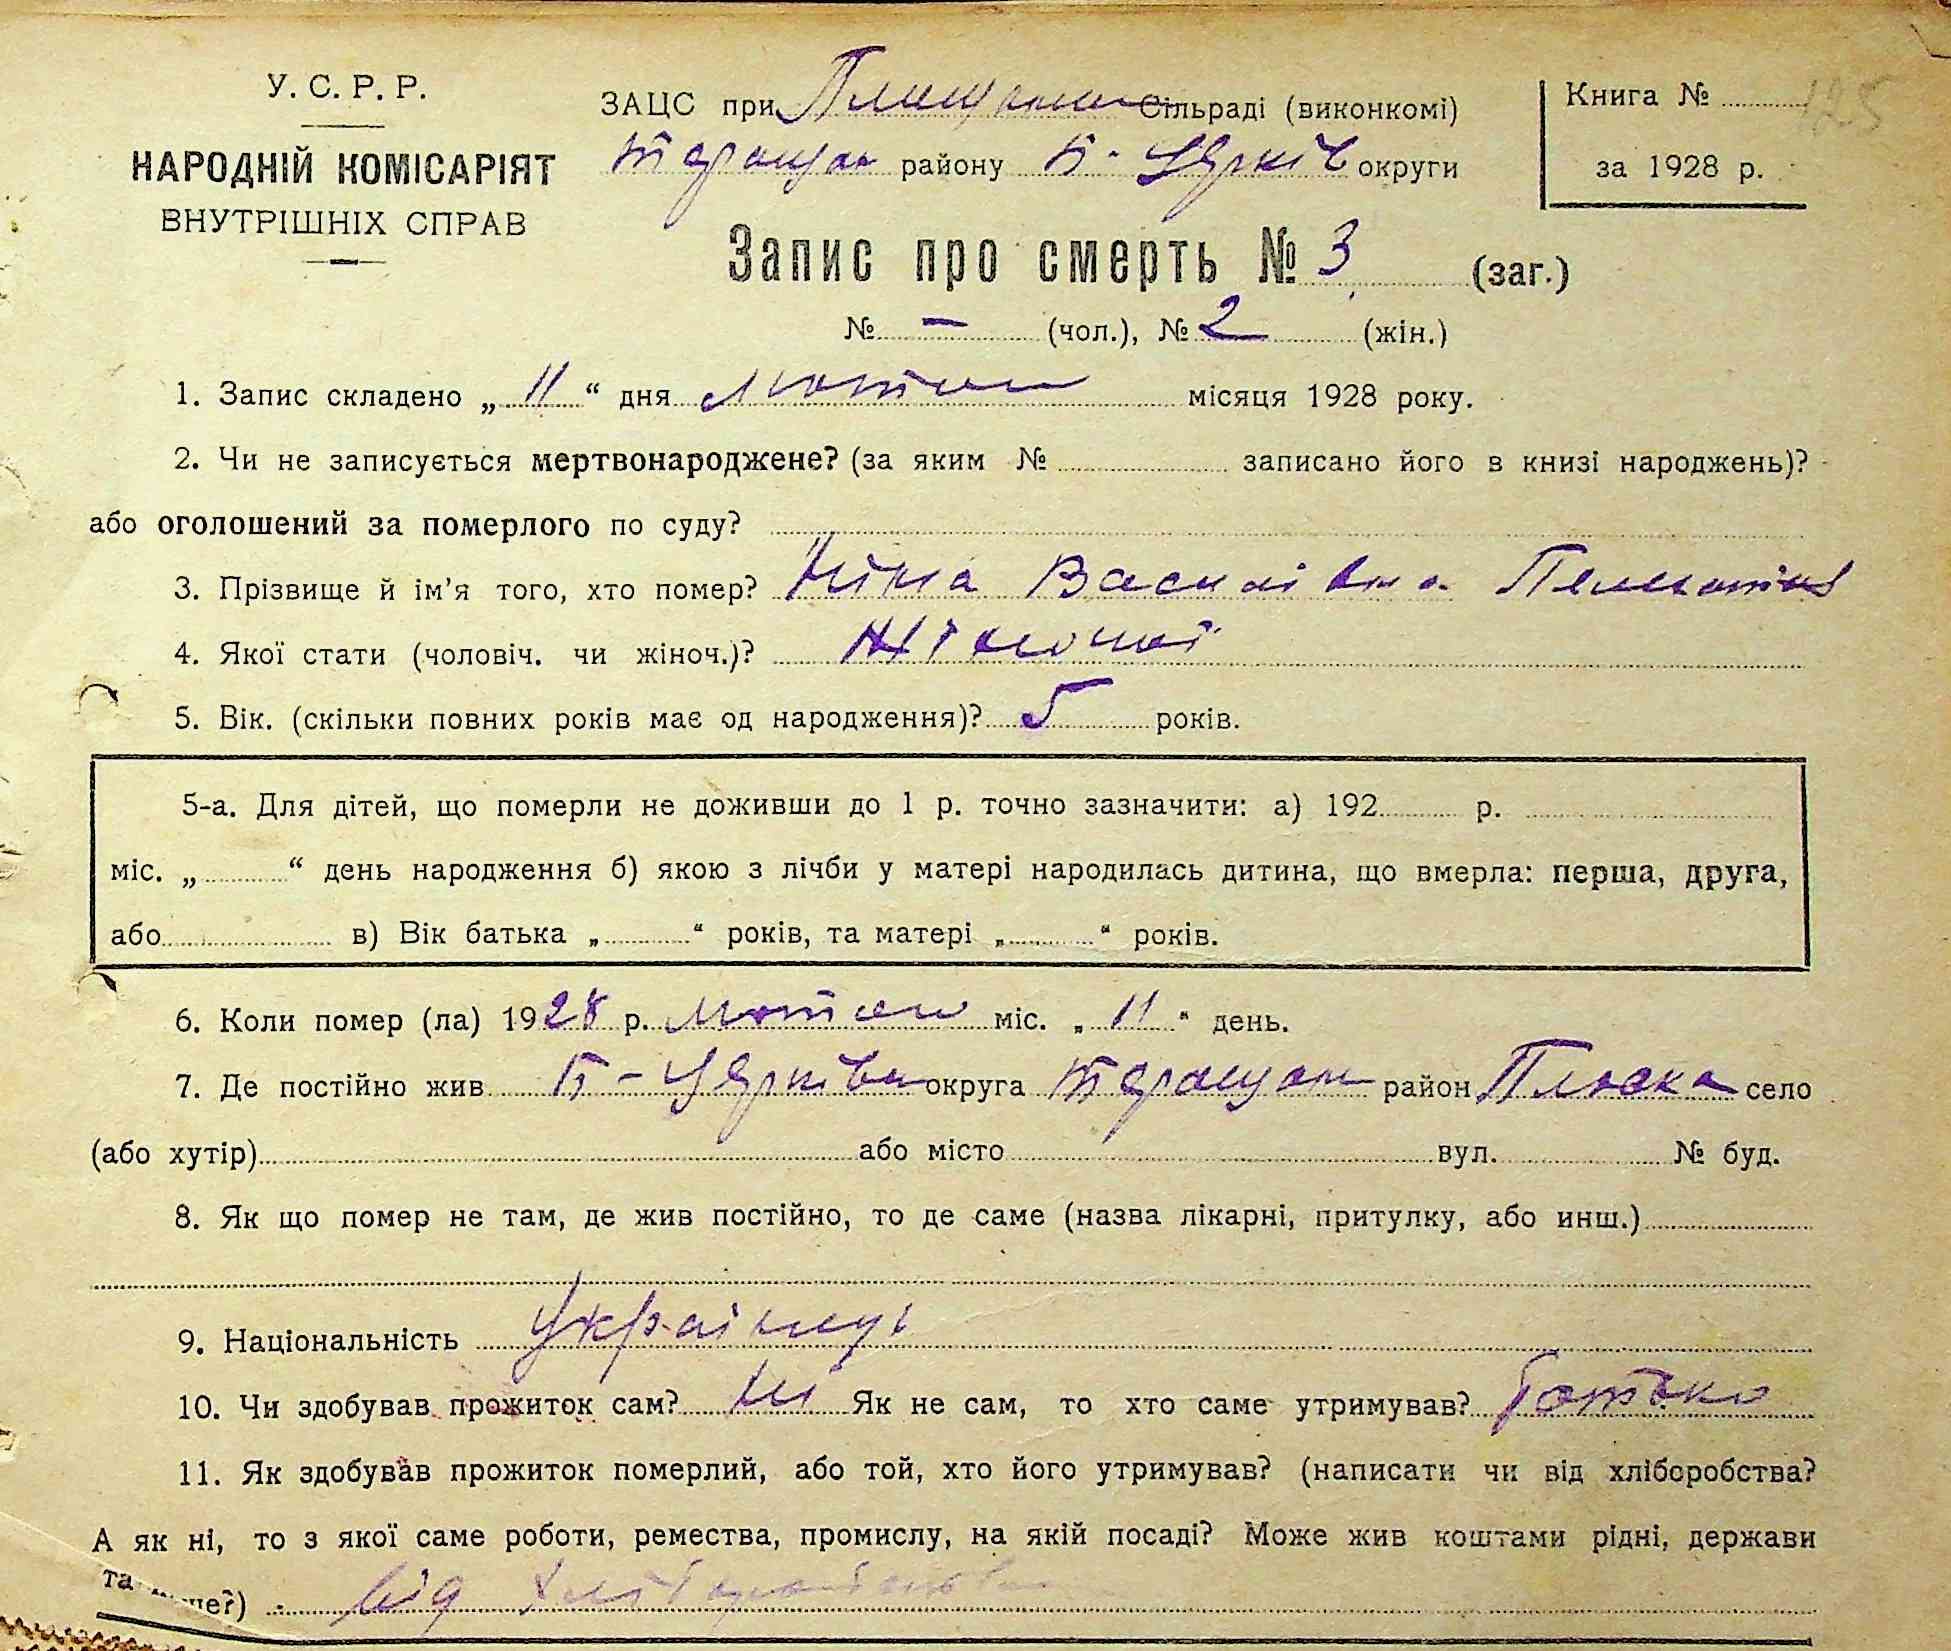 У. С. Р. Р.
НАРОДНІЙ КОМІСАРІЯТ
ВНУТРІШНІХ СПРАВ
ЗАЦС при Сільраді (виконкомі)
Таращан району Б-Церків округи
Книга № 125
за 1928 р.
Запис про смерть № 3 (заг.)
№ — (чол.), № 2 (жін.)
1. Запис складено „ 11 “ дня Лютого місяця 1928 року.
2. Чи не записується мертвонароджене? (за яким № записано його в книзі народжень)?
або оголошений за померлого по суду?
3. Прізвище й ім’я того, хто помер? Ніна Василівна
4. Якої стати (чоловіч. чи жіноч.)? Жіночої
5. Вік. (скільки повних років має од народження)? 5 років.
5-а. Для дітей, що померли не доживши до 1 р. точно зазначити: а) 192 р.
міс. „ “ день народження б) якою з лічби у матері народилась дитина, що вмерла: перша, друга,
або в) Вік батька „ “ років, та матері „ “ років.
6. Коли помер (ла) 1928 р. Лютого міс. „ 11 “ день.
7. Де постійно жив Б-Церківська округа Таращан район Плоска село
(або хутір) або місто вул. № буд.
8. Як що помер не там, де жив постійно, то де саме (назва лікарні, притулку, або инш.)
9. Національність Українці
10. Чи здобував прожиток сам? Ні Як не сам, то хто саме утримував? Батько
11. Як здобував прожиток померлий, або той, хто його утримував? (написати чи від хліборобства?
А як ні, то з якої саме роботи, ремества, промислу, на якій посаді? Може жив коштами рідні, держави
та від хліборобства